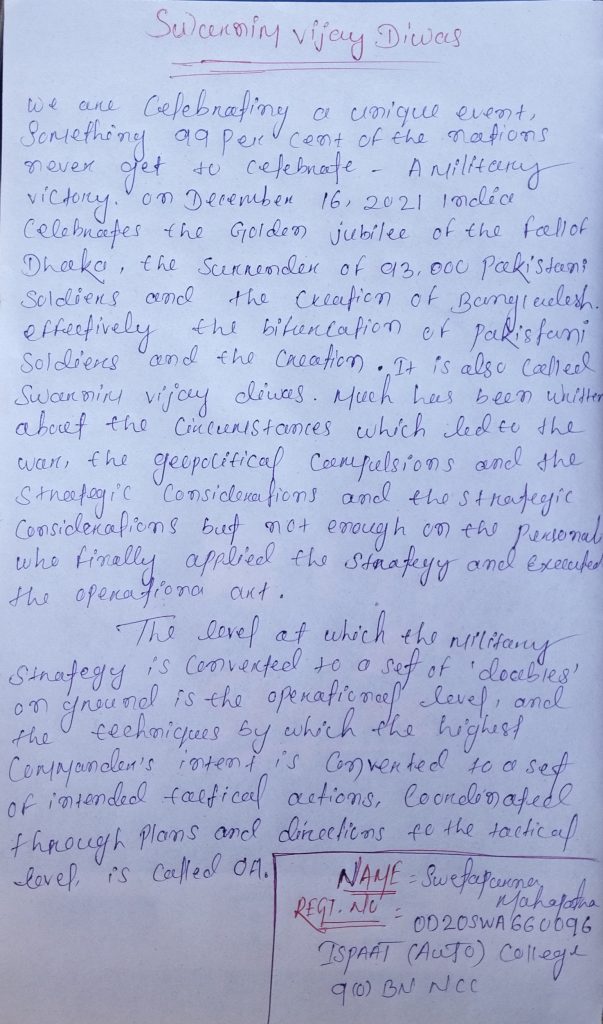 Swarnim Vijay Diwas
We are Celebrating a unique event,
Something 99 Per cent of the nations
never get to celebrate - A military
victory. on December 16, 2021 India
Celebrates the Golden jubilee of the fall of
Dhaka, the Surrender of 93,000 Pakistani
Soldiers and the Creation of Bangladesh.
effectively the bifurcation of Pakistani
Soldiers and the Creation. It is also Called
Swarnim vijay diwas. Much has been written
about the Circumstances which led to the
war, the geopolitical Compulsions and the
Strategic Considerations and the strategic
Considerations but not enough on the Personal
who finally applied the Strategy and Executed
the operationa art.
The level at which the military
Strategy is Converted to a set of 'doables'
on ground is the operational level, and
the techniques by which the highest
Commander's intent is Converted to a set
of intended tactical actions, Coordinated
through Plans and directions to the tactical
level, is Called OA.
NAME = Swetaparna
Mahapatra
REGT. NO = OD20SWA660096
ISPAAT (AUTO) College
9(O) BN NCC